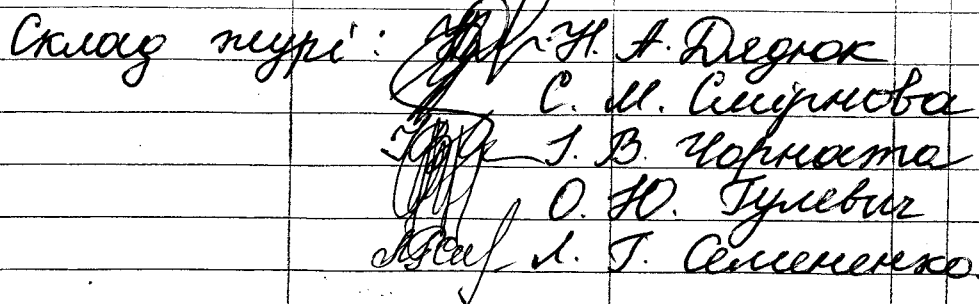 Склад журі: Н. А. Дядюк
С. М. Смірнова
І. В. Чорната
О. Ю. Гулевич
Л. Г. Семененко.